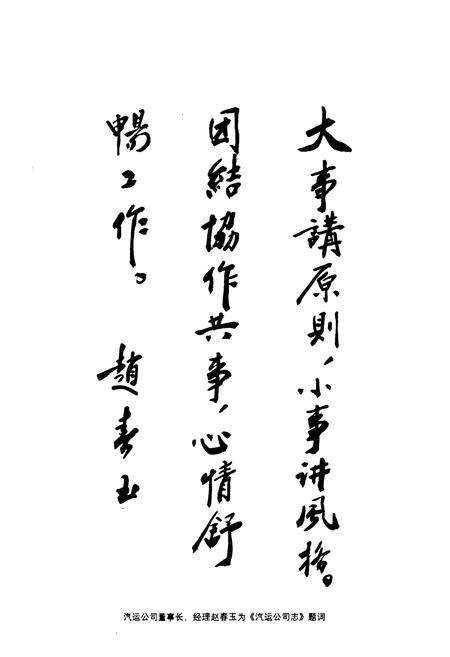 大事講原則，小事讲風格。
团結協作共事，心情舒
暢工作。 趙春玉
汽运公司董事长、经理赵春玉为《汽运公司志》题词